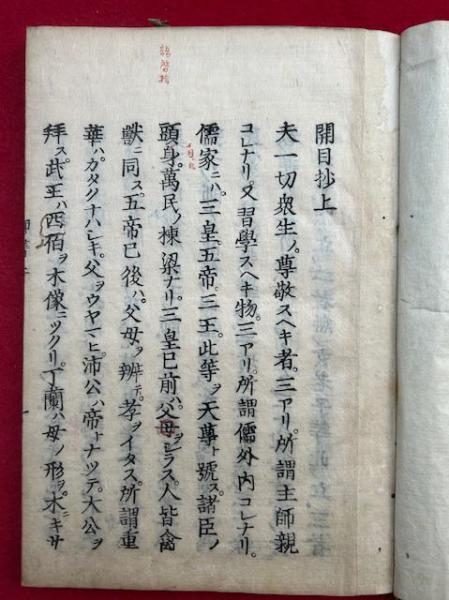 開目抄上
夫一切衆生ノ尊敬スヘキ者。三アリ。所謂主師親
コレナリ。又習學スヘキ物。三アリ。所謂儒外内コレナリ。
儒家ニハ。三皇。五帝。三王。此等ヲ天尊ト號ス。諸臣ノ
頭身。萬民ノ棟梁ナリ。三皇已前ハ。父母ヲシラス。人皆禽
獸ニ同ス。五帝已後ハ。父母ヲ辨テ。孝ヲイタス。所謂重
華ハ。カタクナハシキ。父ヲウヤマヒ。沛公ハ帝トナツテ。大公ヲ
拜ス。武王ハ西伯ヲ木像ニツクリ。丁蘭ハ母ノ形ヲ木ニキサ